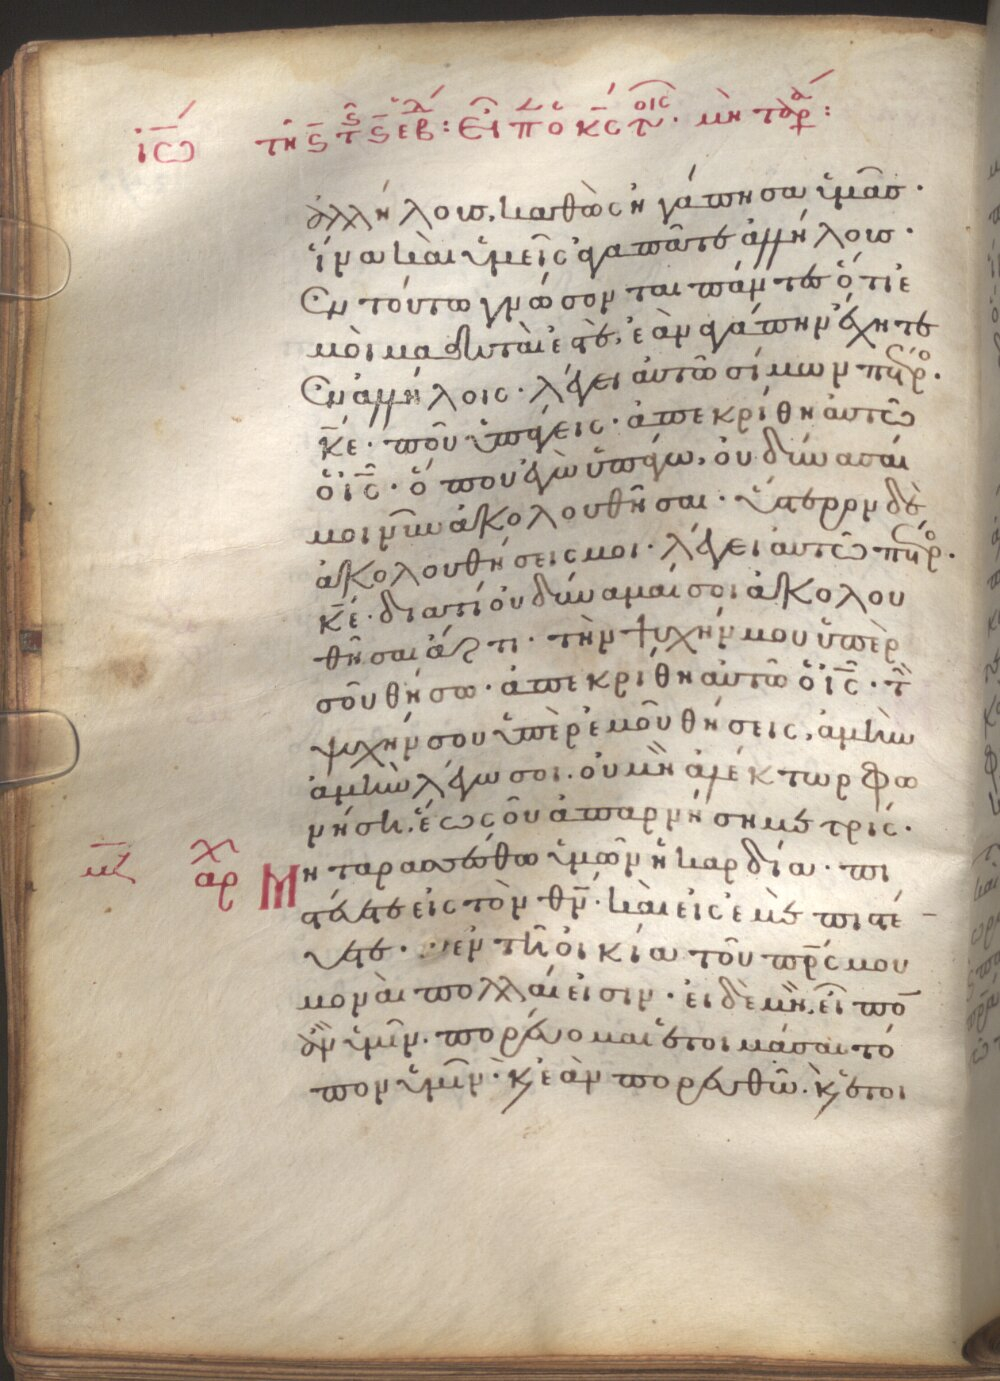 ἰω τῆ ς τ ς ἑβ : Εἶ π ὁ κς τοις · μὴ ταρ :
ἀλλήλοις, καθὼς ἠγάπησα ὑμᾶς ·
ἵνα καὶ ὑμεῖς ἀγαπᾶτε ἀλλήλοις ·
Ἐν τούτω γνώσονται πάντες ὅτι ἐ
μοὶ μαθηταί ἐστὲ, ἐὰν ἀγάπην ἔχητε
Ἐν ἀλλήλοις · λέγει αὐτῶ σίμων πέτρο ·
κε · ποῦ ὑπάγεις · ἀπεκρίθη αὐτῶ
ὁ ις · ὅπου ἐγὼ ὑπάγω, οὐ δύνασαί
μοι νῦν ἀκολουθῆσαι · ὕστερον δὲ
ἀκολουθήσεις μοι · λέγει αὐτῶ πέτρο ·
κε · διατί οὐ δύναμαί σοι ἀκολου
θῆσαι ἄρτι · τὴν ψυχήν μου ὑπὲρ
σοῦ θήσω · ἀπεκρίθη αὐτῶ ὁ ις · τὴν
ψυχήν σου ὑπὲρ ἐμοῦ θήσεις, ἀμὴν
ἀμὴν λέγω σοι · οὐ μὴ ἀλέκτωρ φω
νήση, ἕως οὗ ἀπαρνήση με τρίς ·
αρχ Μὴ ταρασσέσθω ὑμῶν ἡ καρδία · πι
στεύετε εἰς τὸν θν · καὶ εἰς ἐμὲ πιστε
ύετε · ἐν τῆ οἰκία τοῦ πρς μου
μοναὶ πολλαί εἰσιν · εἰ δὲ μὴ, εἶπον
ἂν ὑμῖν · πορεύομαι ἑτοιμάσαι τό
πον ὑμῖν · κ ἐὰν πορευθῶ · κ ἑτοι